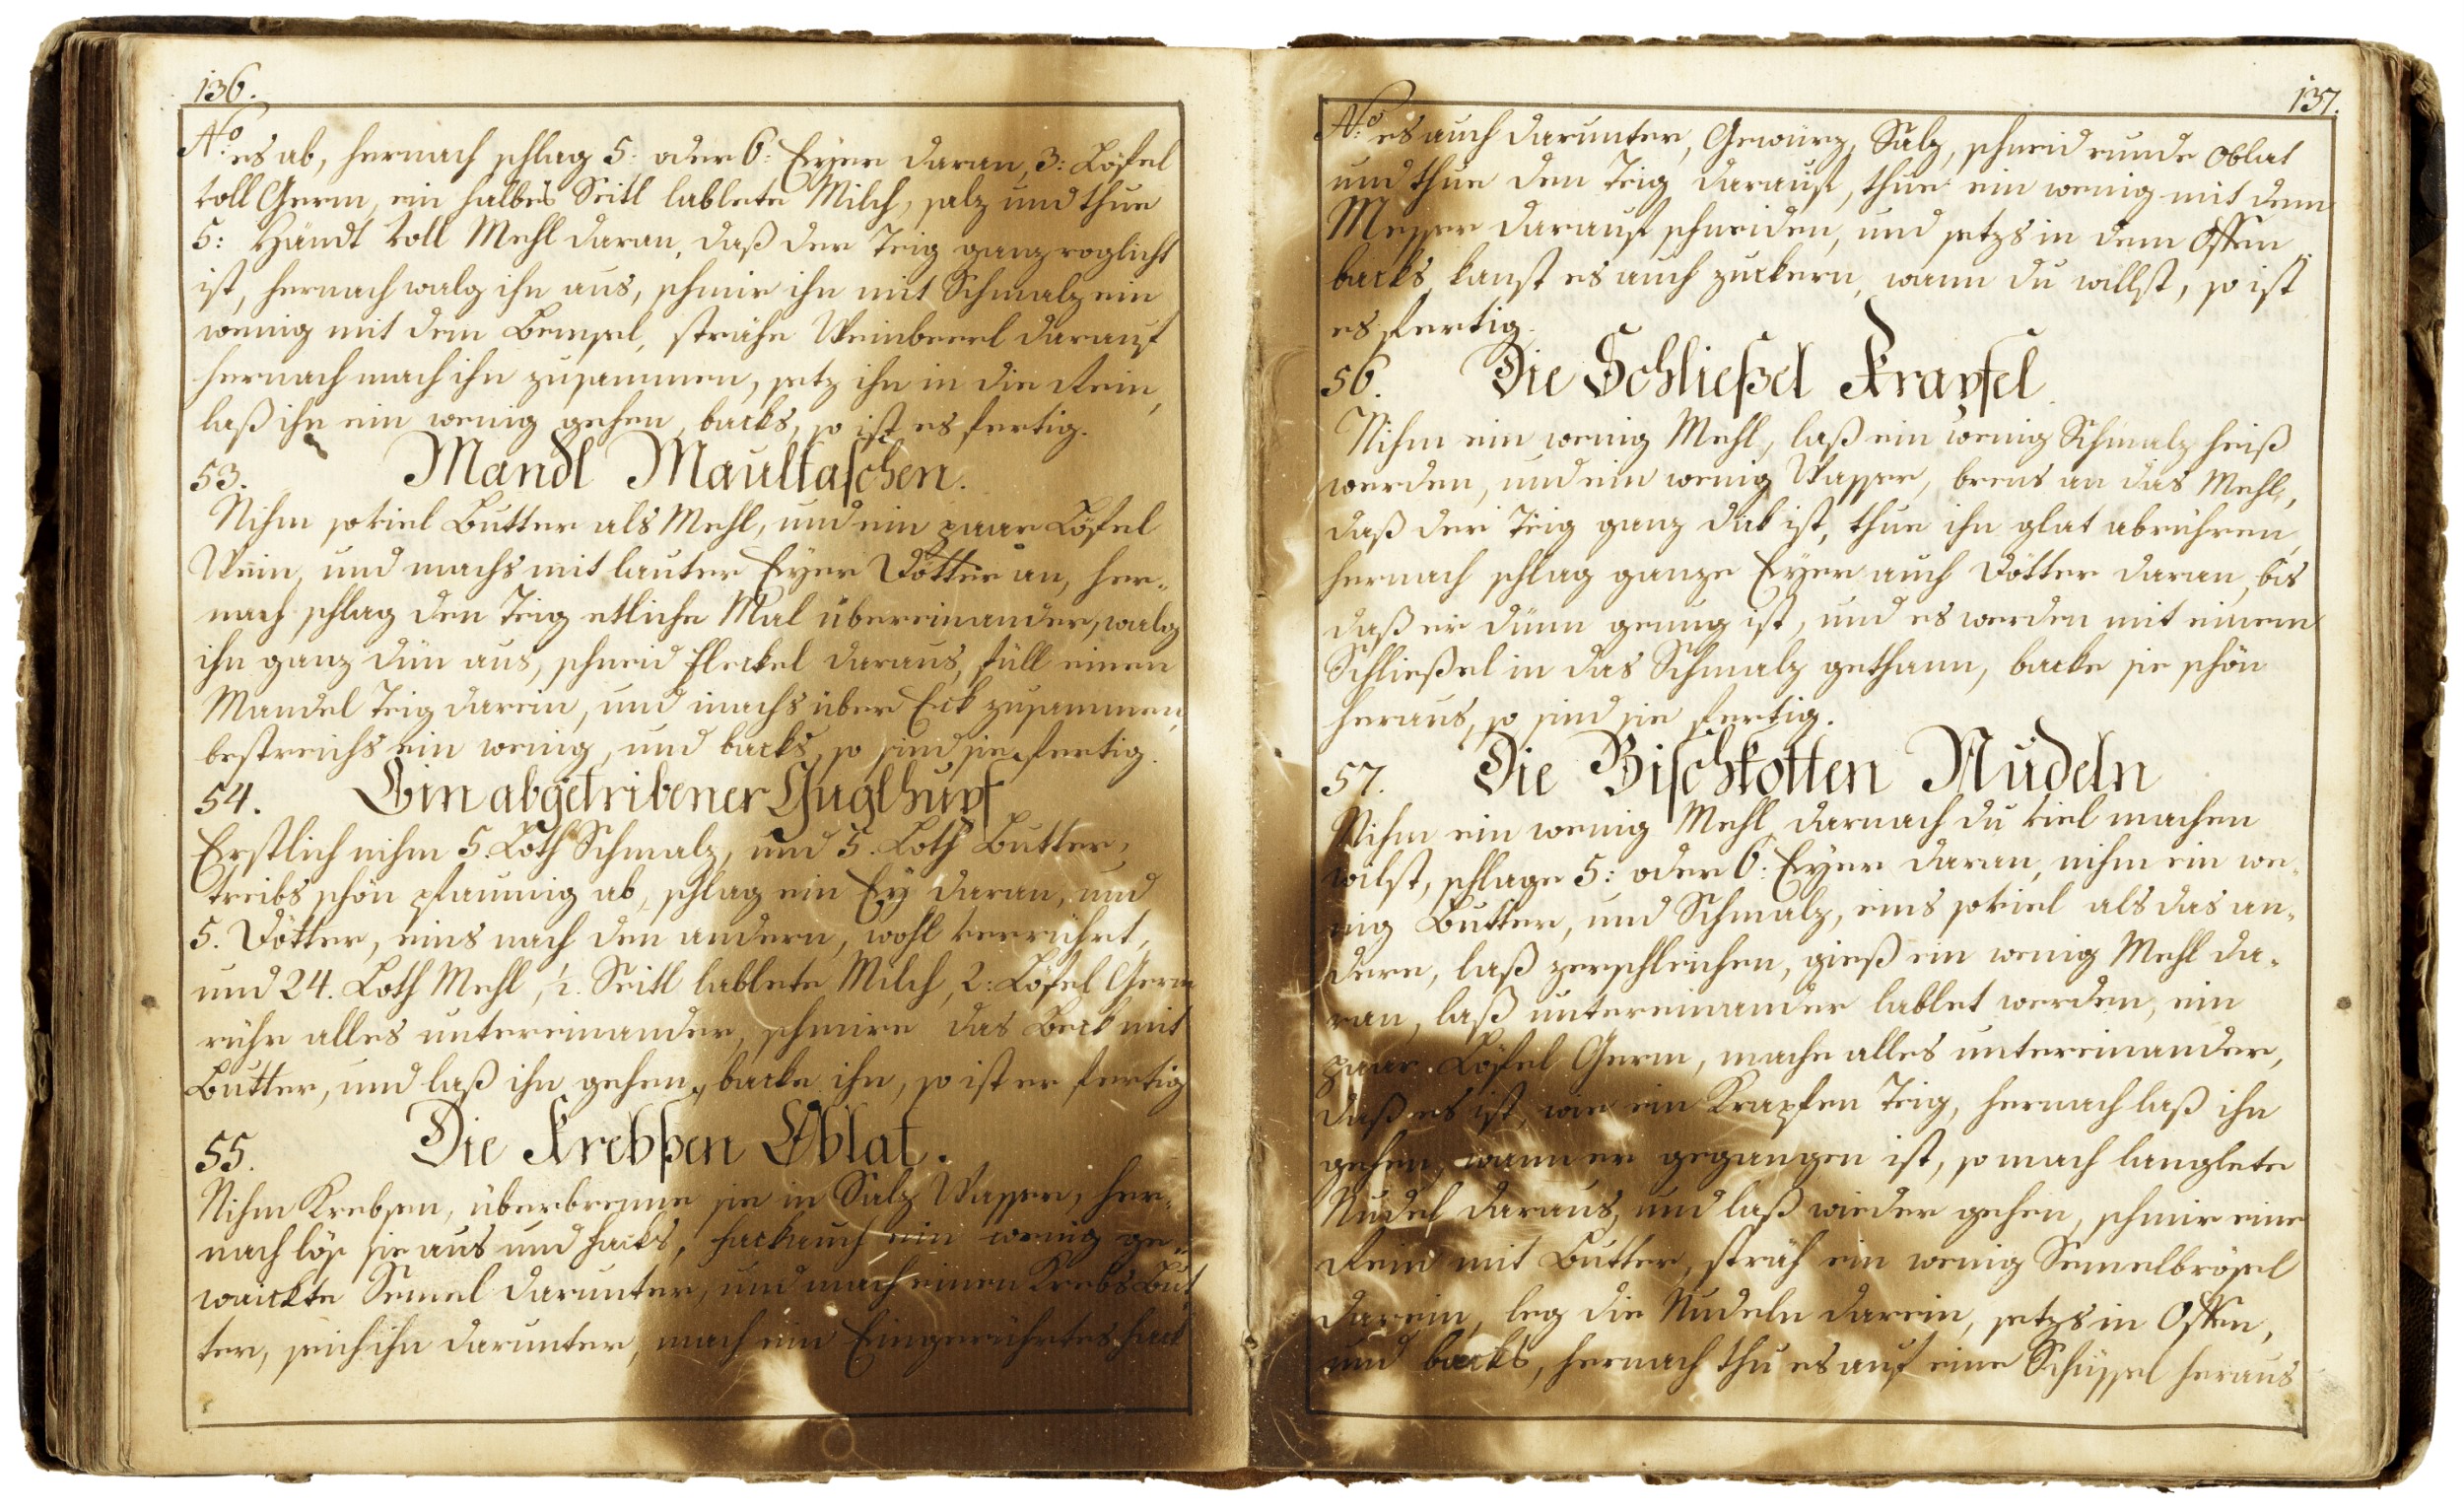 136.
No: es ab, hernach schlag 5: oder 6: Eyer daran, 3: Löfel
voll Germ, ein halbes Seitl lablete Milch, salz und thue
5: Händt voll Mehl daran, daß der Teig ganz roglicht
ist, hernach walg ihn aus, schmir ihn mit Schmalz ein
wenig mit dem Bemsel, strähe Weinbeerl darauf
hernach mach ihn zusammen, setz ihn in die Rein,
laß ihn ein wenig gehen, backs, so ist es fertig.
53. Mandl Maultaschen.
Nihm soviel Butter als Mehl, und ein paar Löfel
Wein, und machs mit lauter Eyer Dötter an, her-
nach schlag den Teig etliche Mal übereinander, walg
ihn ganz dün aus, schneid Fleckel daraus, füll einen
Mandel Teig darein, und machs über Eck zusammen,
bestreichs ein wenig, und backs, so sind sie fertig.
54. Ein abgetribener Guglhupf
Erstlich nihm 5. Loth Schmalz, und 5. Loth Butter,
treibs schön pfaumig ab, schlag ein Ey daran, und
5. Dötter, eins nach den andern, wohl verrührt,
und 24. Loth Mehl, ½. Seitl lablete Milch, 2: Löfel Germ
rühr alles untereinander, schmire das Beck mit
Butter, und laß ihn gehen, backe ihn, so ist er fertig
55. Die Krebßen Oblat.
Nihm Krebsen, überbrenne sie in Salz Wasser, her-
nach lös sie aus und hacks, hack auch ein wenig ge-
waickte Semel darunter, und mach einen Krebs But
ter, seich ihn darunter, mach ein Eingerührtes hack
137.
No: es auch darunter, Gewürz, Salz, schneid runde Oblat
und thue den Teig darauf, thue ein wenig mit dem
Messer darauf schneiden, und setzs in dem Offen
backs, kanst es auch zuckern, wann du willst, so ist
es fertig.
56. Die Schließel Krapfel.
Nihm ein wenig Mehl, laß ein wenig Schmalz heiß
werden, und ein wenig Wasser, brens an das Mehl,
daß der Teig ganz dik ist, thue ihn glat abrühren,
hernach schlag ganze Eyer auch Dötter daran, bis
daß er dünn genug ist, und es werden mit einem
Schließel in das Schmalz gethann, backe sie schön
heraus, so sind sie fertig.
57. Die Bischkotten Nudeln
Nihm ein wenig Mehl, darnach du viel machen
wilst, schlage 5: oder 6: Eyer daran, nihm ein we-
nig Butter, und Schmalz, eins soviel als das an-
dere, laß zerschleichen, gieß ein wenig Mehl da-
ran, laß untereinander lablet werden, ein
paar Löfel Germ, mache alles untereinander,
daß es ist, wie ein Krapfen Teig, hernach laß ihn
gehen, wann er gegangen ist, so mach langlete
Nudel daraus, und laß wieder gehen, schmir eine
Rein mit Butter, sträh ein wenig Semelbrösel
darein, leg die Nudeln darein, setzs in Offen,
und backs, hernach thu es auf eine Schüssel heraus